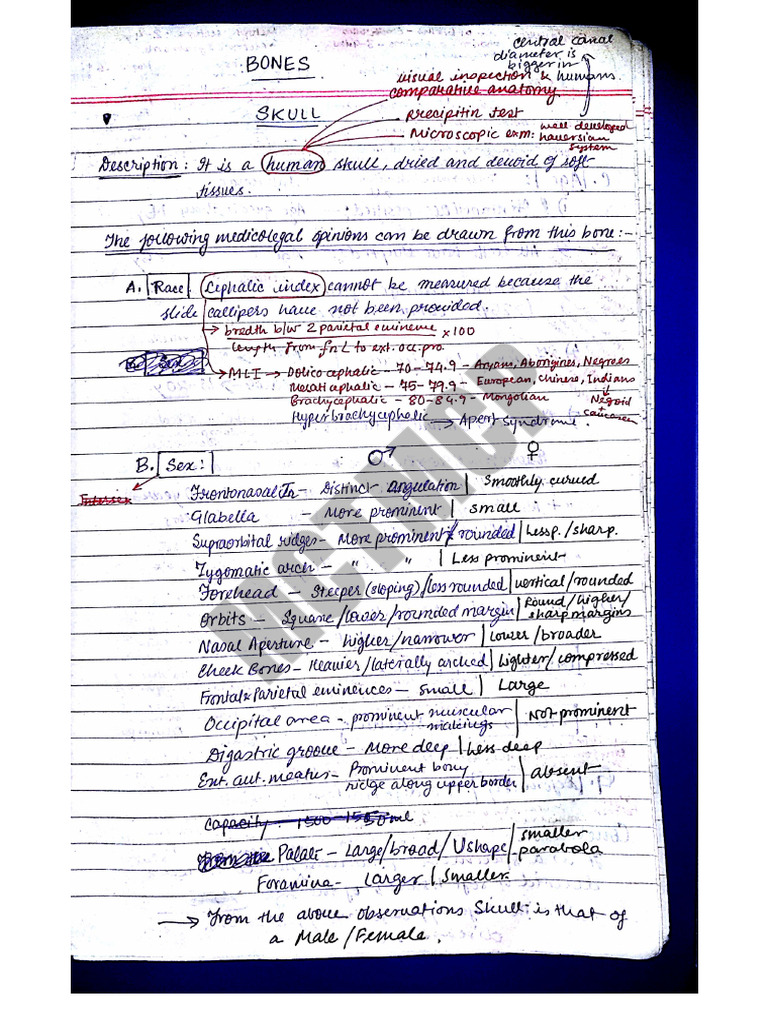 BONES
central canal
diameter is
bigger in
humans.
visual inspection &
comparative anatomy
SKULL
precipitin test
microscopic exm: well developed
haversian
system
Description: It is a human skull, dried and devoid of soft
tissues.
The following medicolegal opinions can be drawn from this bone:-
A. Race Cephalic index cannot be measured because the
slide callipers have not been provided.
→ bredth b/w 2 parietal eminence x100
length from fnL to ext. occ. pro.
→ MLI → Dolico cephalic - 70-74.9 - Aryans, Aborigines, Negroes
Mesaticephalic - 75-79.9 - European, Chinese, Indians
Brachycephalic - 80-84.9 - Mongolian
Negroid
caucasean
Hyperbrachycephalic → Apert syndrome.
B. Sex: ♂ ♀
Intersex
Frontonasal Jn - Distinct Angulation | Smoothly curved
Glabella - More prominent | small
Supraorbital ridges - More prominent / rounded | Less p. / sharp.
Zygomatic arch - " " | Less prominent
Forehead - Steeper (sloping) / less rounded | vertical / rounded
Orbits - Square / lower / rounded margin | Round / higher /
sharp margins
Nasal Aperture - higher / narrower | Lower / broader
Cheek Bones - Heavier / laterally arched | Lighter / compressed
Frontal & Parietal eminences - small | Large
Occipital area - prominent muscular | Not prominent
markings
Digastric groove - More deep | Less deep
Ext. aut. meatus - Prominent bony | absent
ridge along upper border
Capacity
Palate - Large / broad / U shape | smaller
parabola
Foramina - Larger | Smaller.
→ From the above observations Skull is that of
a Male / Female.
MCTMCP